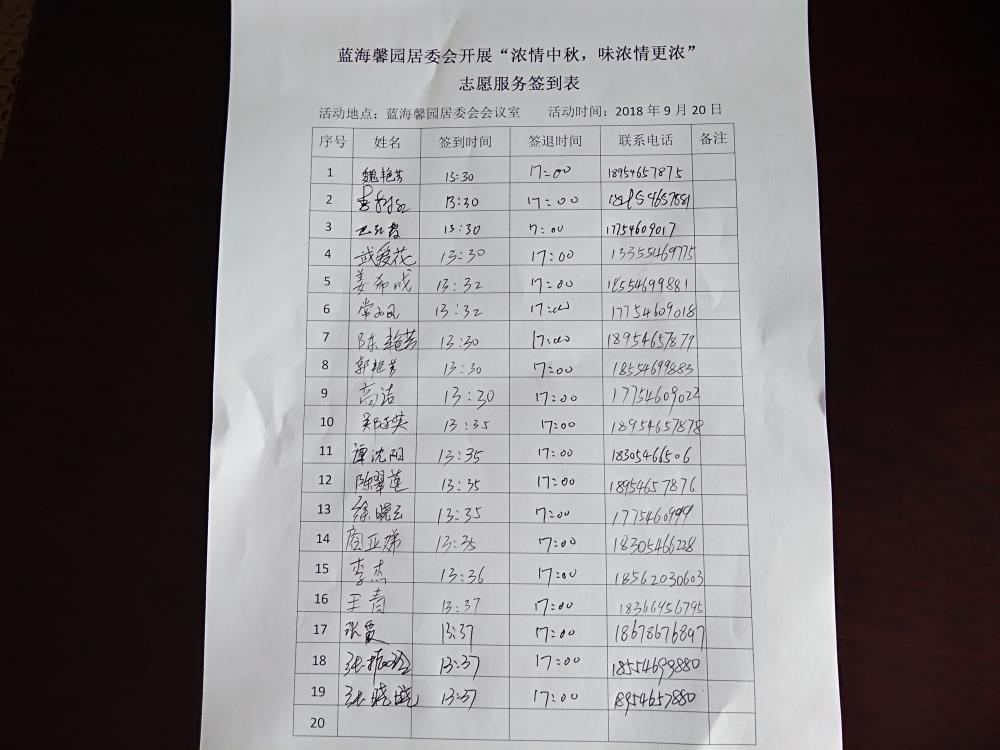 蓝海馨园居委会开展“浓情中秋，味浓情更浓”
志愿服务签到表
活动地点：蓝海馨园居委会会议室 活动时间：2018 年 9 月 20 日
序号 姓名 签到时间 签退时间 联系电话 备注
1 魏艳芳 13:30 17:00 18954657875
2 13:30 17:00
3 13:30 17:00 17754609017
4 武爱花 13:30 17:00 13355469775
5 姜希成 13:32 17:00 18554699881
6 13:32 17:00 17754609018
7 陈艳芳 13:30 17:00 18954657879
8 郭艳芳 13:30 17:00 18554699883
9 高洁 13:30 17:00 17754609022
10 13:35 17:00 18954657878
11 谭沈阳 13:35 17:00 18305466506
12 陈翠莲 13:35 17:00 18954657876
13 徐晓云 13:35 17:00 1775460999
14 商亚娣 13:35 17:00 18305466228
15 李杰 13:36 17:00 18562030603
16 王青 13:37 17:00 18366956795
17 张贾 13:37 17:00 18678676897
18 13:37 17:00 18554699880
19 张晓晓 13:37 17:00 18954657880
20